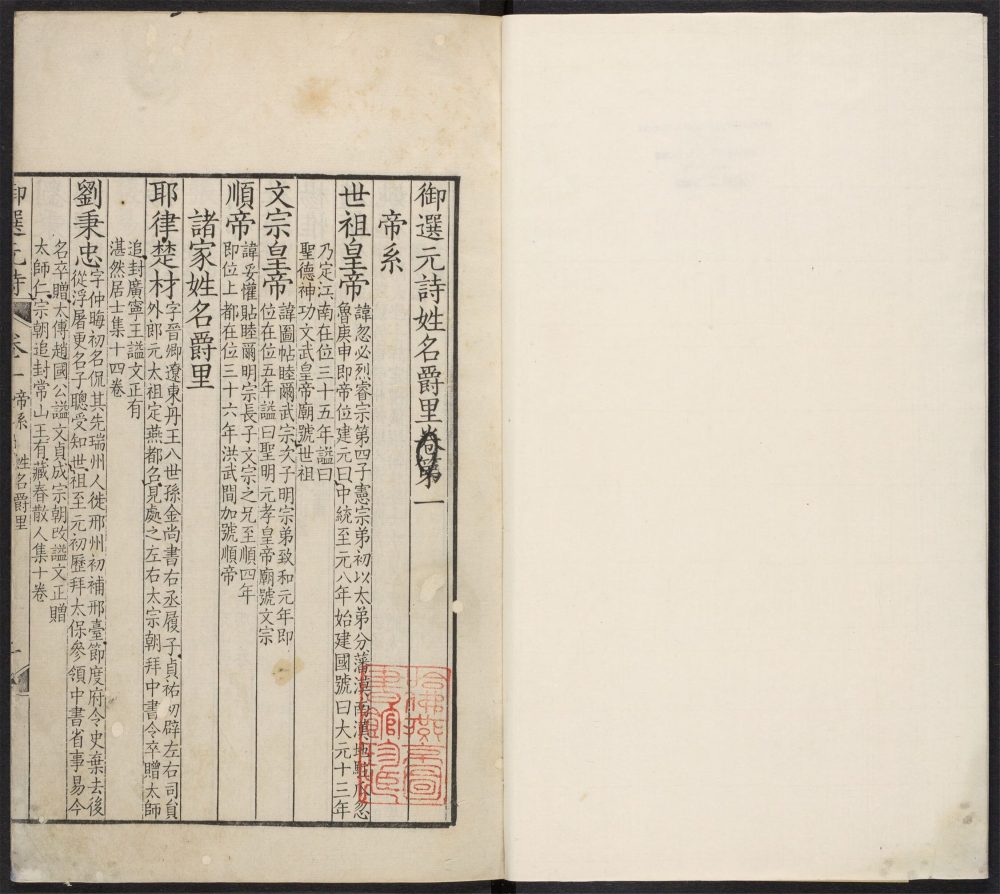 御選元詩姓名爵里卷第一
帝系
世祖皇帝
諱忽必烈睿宗第四子憲宗弟初以太弟分藩漠南漠地駐爪忽
魯庚申即帝位建元曰中統至元八年始建國號曰大元十三年
乃定江南在位三十五年諡曰
聖德神功文武皇帝廟號世祖
文宗皇帝
諱圖帖睦爾武宗次子明宗弟致和元年即
位在位五年諡曰聖明元孝皇帝廟號文宗
順帝
諱妥懽貼睦爾明宗長子文宗之兄至順四年
即位上都在位三十六年洪武間加號順帝
諸家姓名爵里
耶律楚材
字晉卿遼東丹王八世孫金尚書右丞履子貞祐初辟左右司員
外郎元太祖定燕都召見處之左右太宗朝拜中書令卒贈太師
追封廣寧王諡文正有
湛然居士集十四卷
劉秉忠
字仲晦初名侃其先瑞州人徙邢州初補邢臺節度府令史棄去後
從浮屠更名子聰受知世祖至元初歷拜太保參領中書省事易今
名卒贈太傅趙國公諡文貞成宗朝改諡文正贈
太師仁宗朝追封常山王有藏春散人集十卷
御選元詩
卷一
帝系
姓名爵里
一
哈佛燕京圖
書館珍藏印